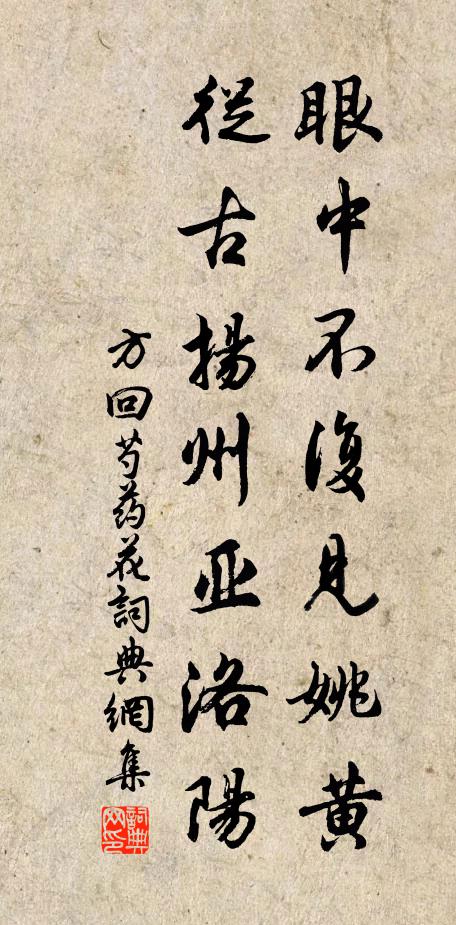 眼中不復見姚黃
從古揚州亚洛陽
方回芍药花詞典網集
詞典網印